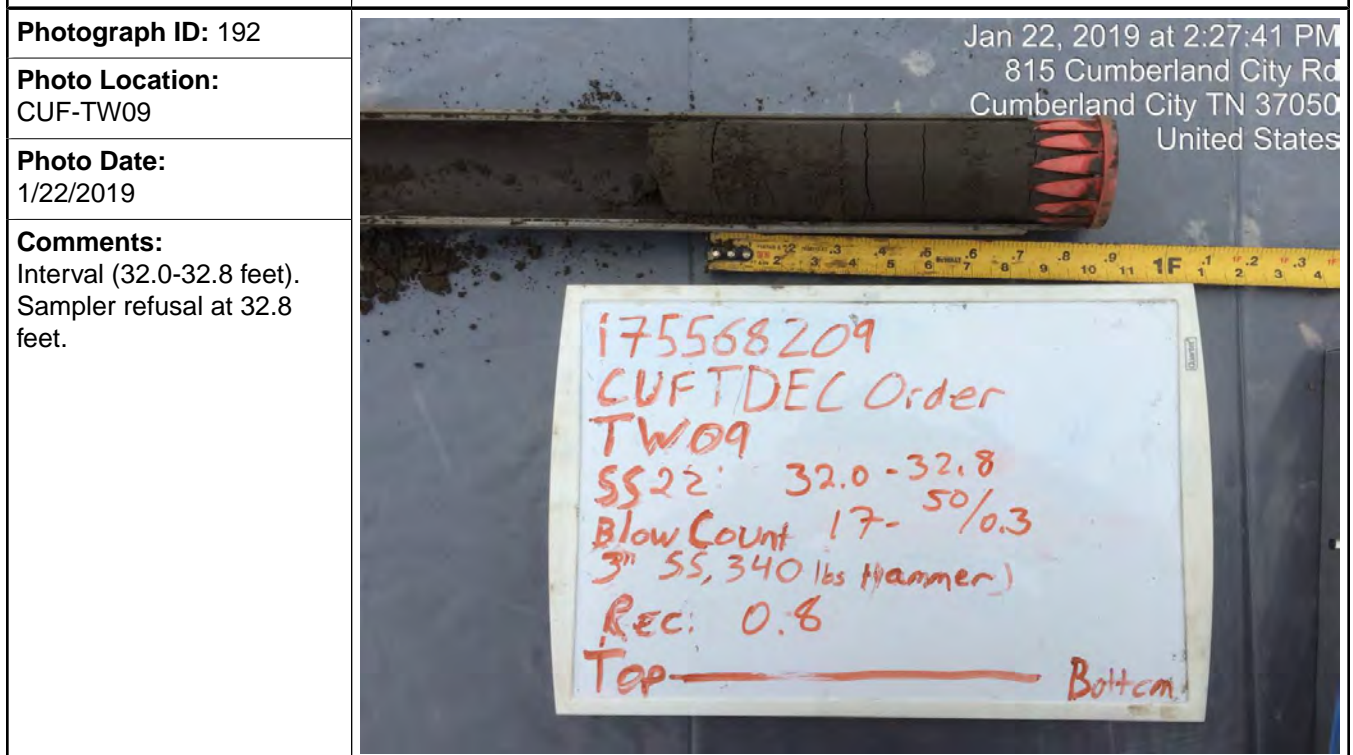 Photograph ID: 192
Photo Location:
CUF-TW09
Photo Date:
1/22/2019
Comments:
Interval (32.0-32.8 feet).
Sampler refusal at 32.8
feet.
Jan 22, 2019 at 2:27:41 PM
815 Cumberland City Rd
Cumberland City TN 37050
United States
.2 .3 .4 .5 .6 .7 .8 .9 .1 .2 .3
2 3 4 5 6 7 8 9 10 11 1F 1 2 3 4
175568209
CUF TDEC Order
TW09
SS22: 32.0-32.8
Blow Count 17- 50/0.3
3" SS, 340 lbs Hammer)
Rec: 0.8
Top Bottom